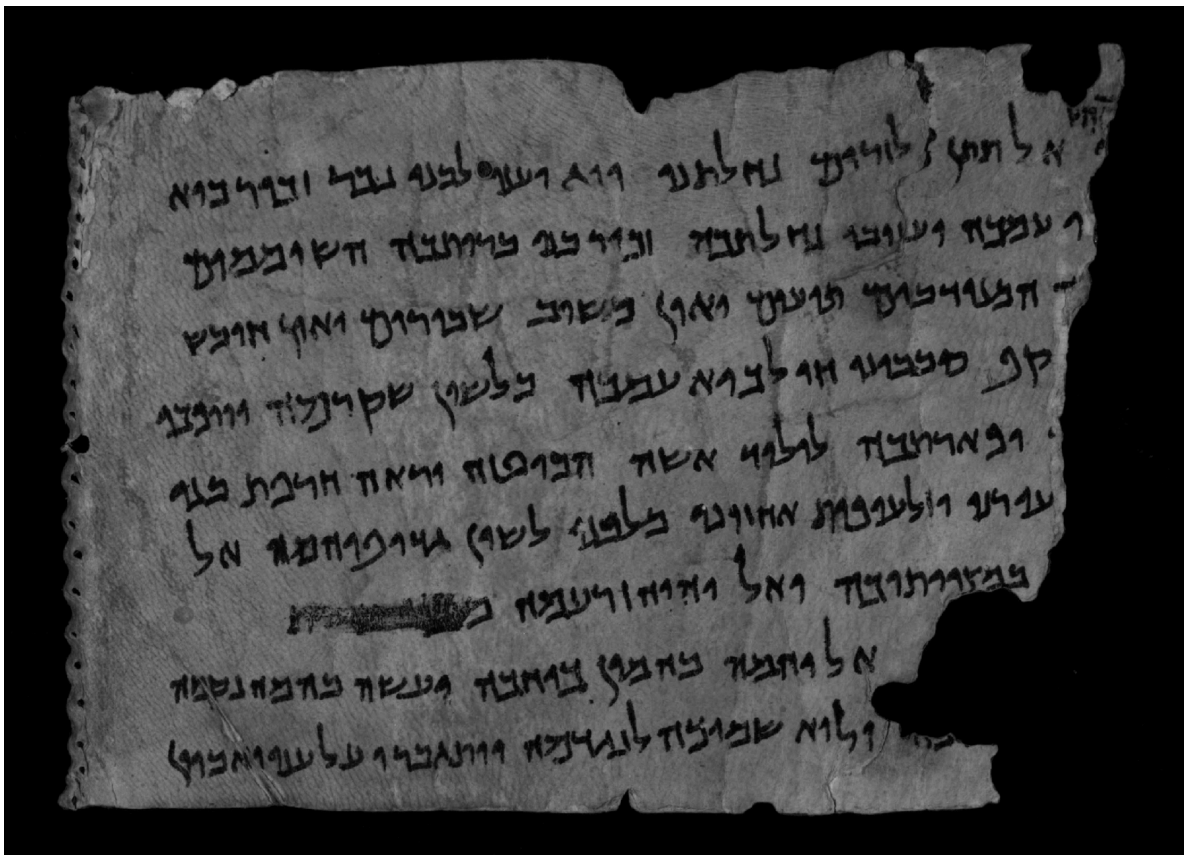 אל תתן לזרים נחלתנו ויגיענו לבני נכר זכור כיא
עמכה ועזובי נחלתכה זכור בני בריתכה השוממים
המנודבים תועים ואין משיב שבורים ואין חובש
קף סבבונו חילכיא עמכה בלשון שקרמה
ופארתכה לילוד אשה הביטה וראה חרפת בני
עורנו וזלעופות אחזונו מלפני לשון גדופיהמה אל
במצוותיכה ואל יהיה זרעמה
אליהמה בהמון כוחכה ועשה מהמה נקמה
ולוא שמוכה לנגדמה ויתגברו על עני ואביון